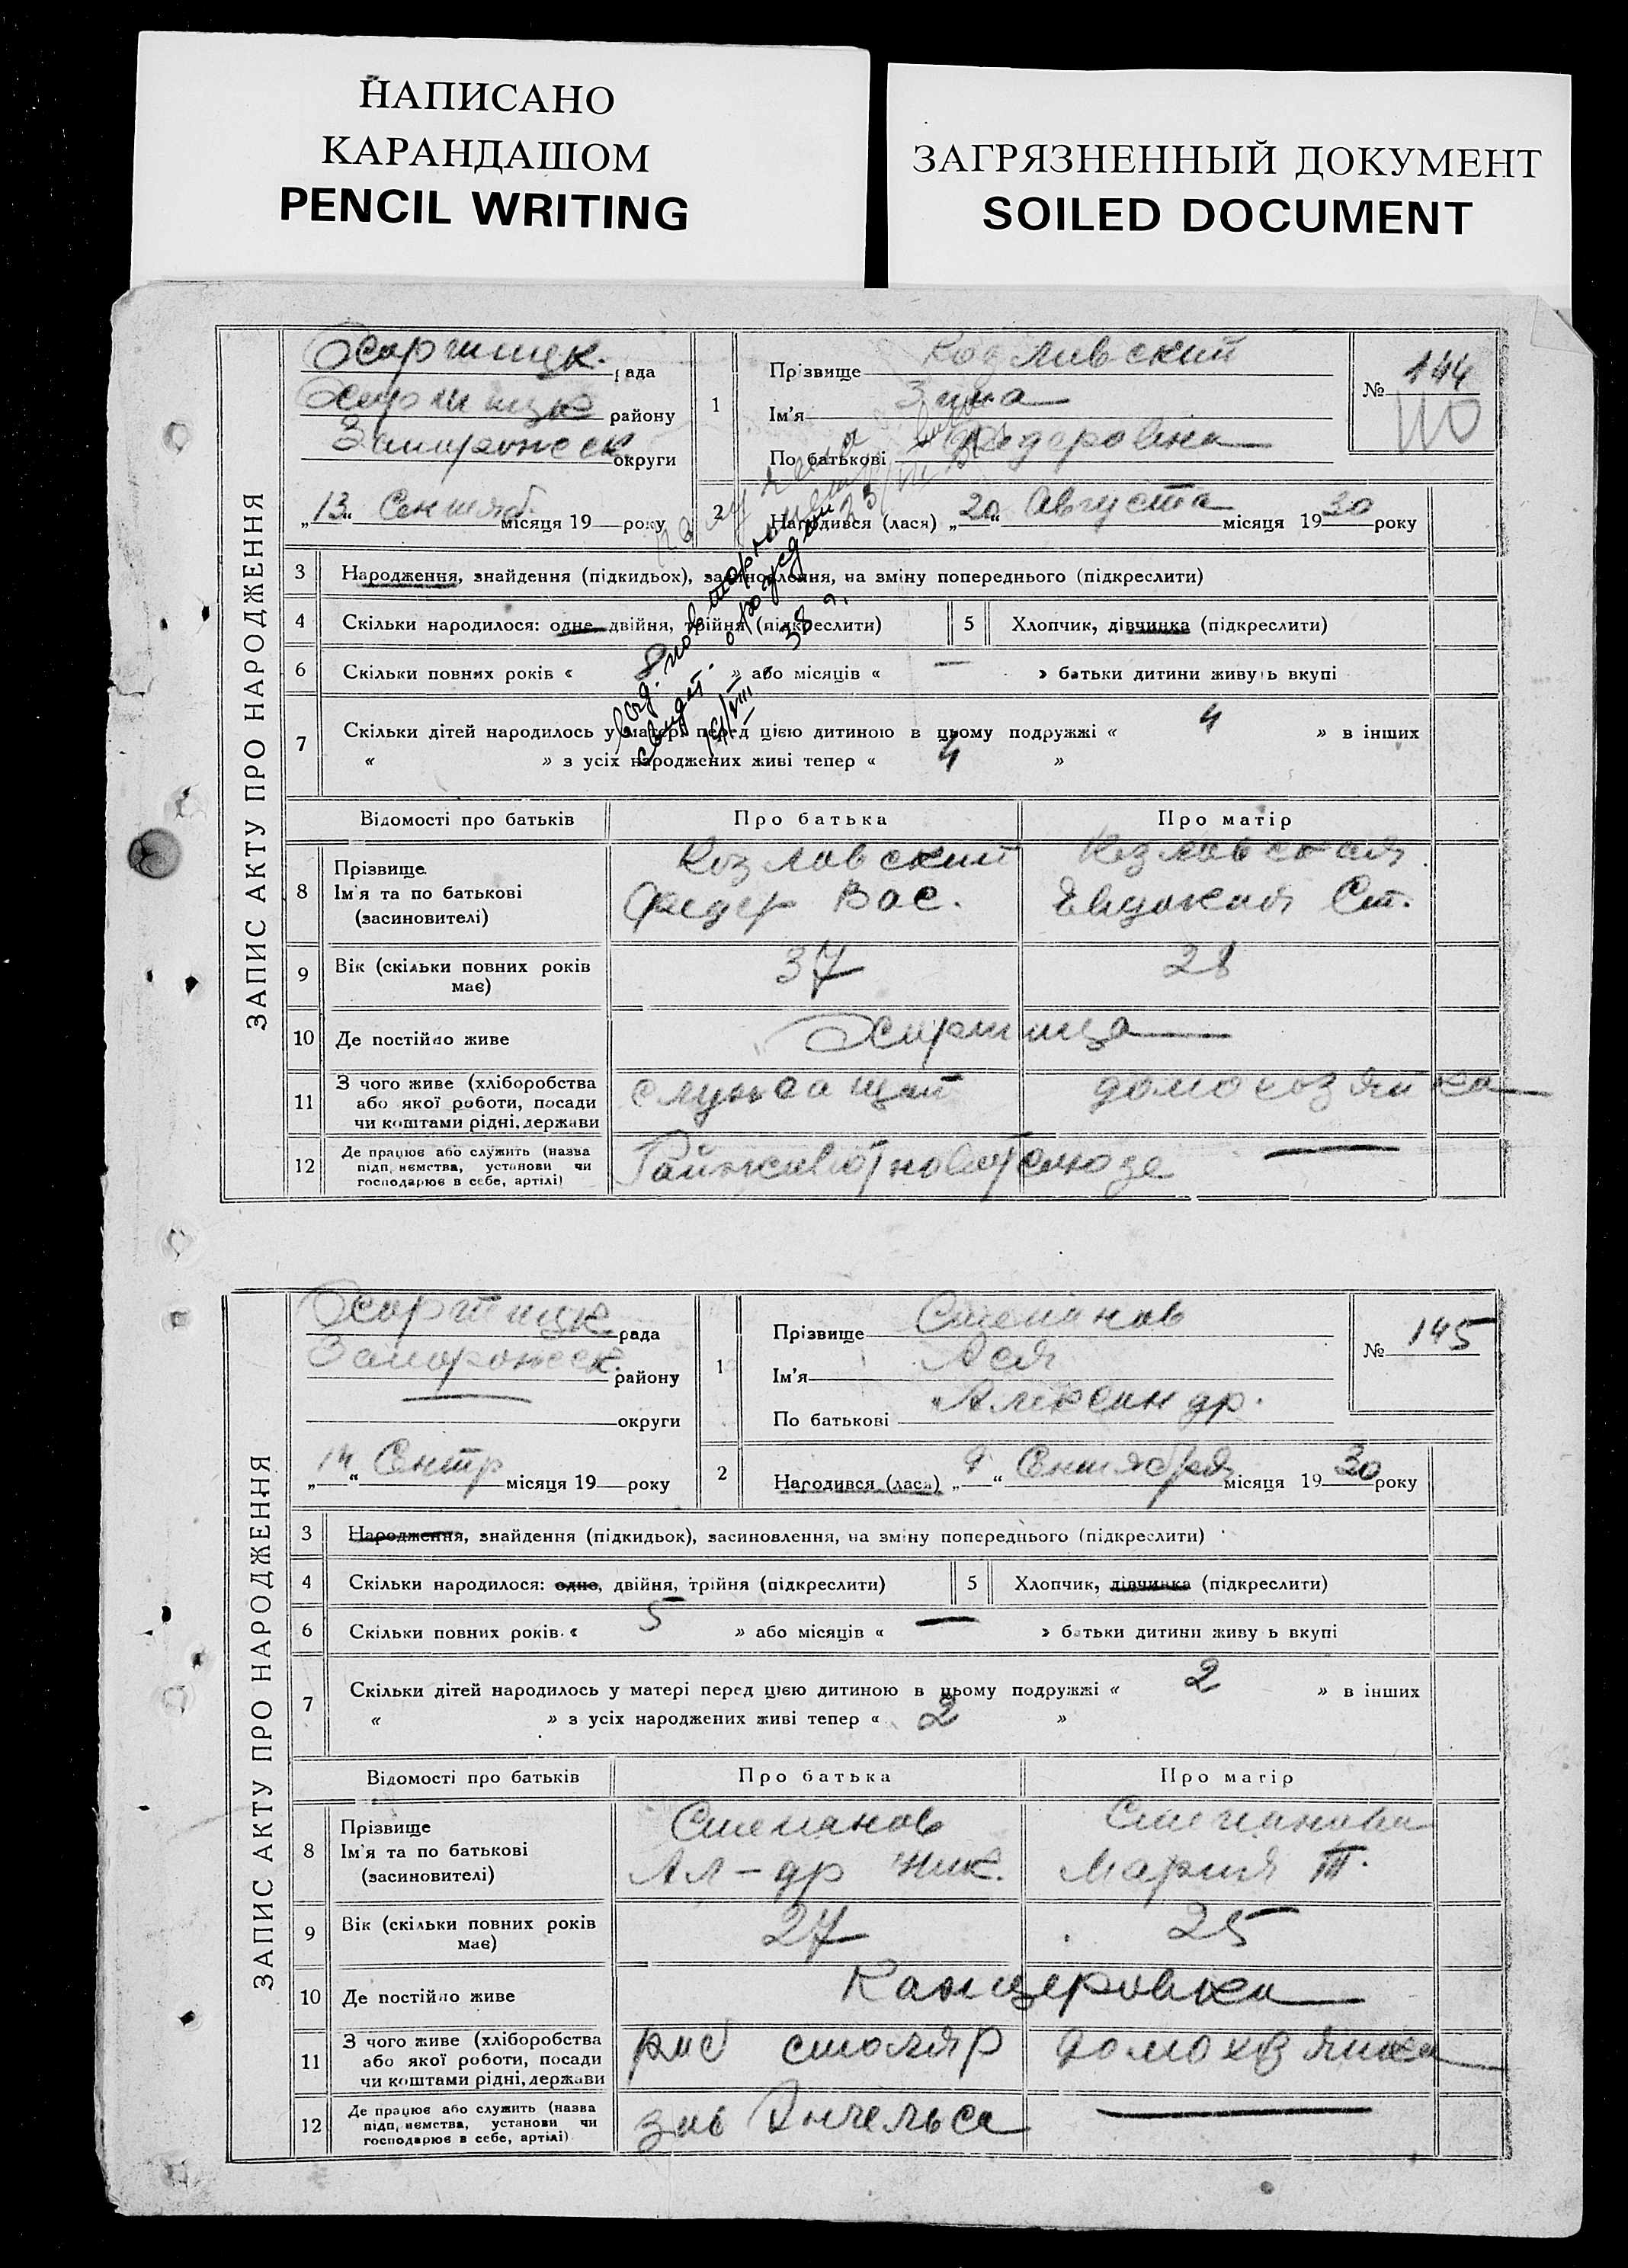 НАПИСАНО
КАРАНДАШОМ
PENCIL WRITING
ЗАГРЯЗНЕННЫЙ ДОКУМЕНТ
SOILED DOCUMENT
ЗАПИС АКТУ ПРО НАРОДЖЕННЯ
Хортицк. рада
Хортицк району
Запорожск округи
„13“ Сентяб. місяця 19 року
1 Прізвище Козловский
Ім'я Зина
По батькові Федоровна
№ 144
2 Народився (лася) „20“ Августа місяця 1930 року
3 Народження, знайдення (підкидьок), засиновлення, на зміну попереднього (підкреслити)
4 Скільки народилося: одне, двійня, трійня (підкреслити) 5 Хлопчик, дівчинка (підкреслити)
6 Скільки повних років « 8 » або місяців « — » батьки дитини живуть вкупі
7 Скільки дітей народилось у матері перед цією дитиною в цьому подружжі « 4 » в інших
« » з усіх народжених живі тепер « 4 »
выд. повторн
свидет. о рождении
38 г.
Відомості про батьків Про батька Про матір
8 Прізвище Козловский Козловская
Ім'я та по батькові Федер Вас. Евдокия Ст.
(засиновителі)
9 Вік (скільки повних років має) 37 28
10 Де постійно живе Хортица
11 З чого живе (хліборобства служащий домохозяйка
або якої роботи, посади
чи коштами рідні, держави
12 Де працює або служить (назва —
підприємства, установи чи
господарює в себе, артілі)
ЗАПИС АКТУ ПРО НАРОДЖЕННЯ
Хортицк. рада
Запорожск. району
— округи
„14“ Сентр місяця 19 року
1 Прізвище Степанов
Ім'я Ася
По батькові Александр.
№ 145
2 Народився (лася) „9“ Сентября місяця 1930 року
3 Народження, знайдення (підкидьок), засиновлення, на зміну попереднього (підкреслити)
4 Скільки народилося: одне, двійня, трійня (підкреслити) 5 Хлопчик, дівчинка (підкреслити)
6 Скільки повних років « 5 » або місяців « — » батьки дитини живуть вкупі
7 Скільки дітей народилось у матері перед цією дитиною в цьому подружжі « 2 » в інших
« » з усіх народжених живі тепер « 2 »
Відомості про батьків Про батька Про матір
8 Прізвище Степанов Степанова
Ім'я та по батькові Ал-др Ник. Мария Т.
(засиновителі)
9 Вік (скільки повних років має) 27 25
10 Де постійно живе Канцеровка
11 З чого живе (хліборобства раб столяр домохозяйка
або якої роботи, посади
чи коштами рідні, держави
12 Де працює або служить (назва зав Энгельса —
підприємства, установи чи
господарює в себе, артілі)